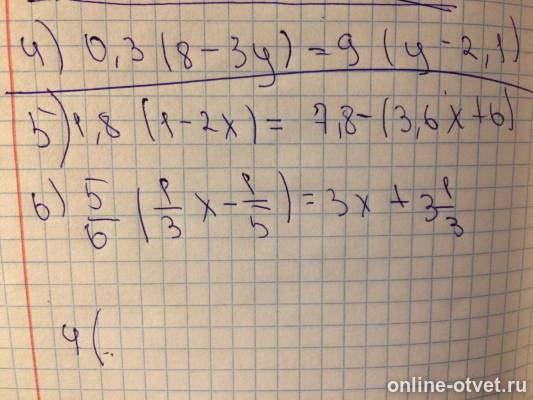 4) 0,3 (8 - 3y) = 9 (y - 2,1)
5) 1,8 (1 - 2x) = 7,8 - (3,6x + 6)
6) 5/6 (1/3 x - 1/5) = 3x + 3 1/3
4 (
online-otvet.ru